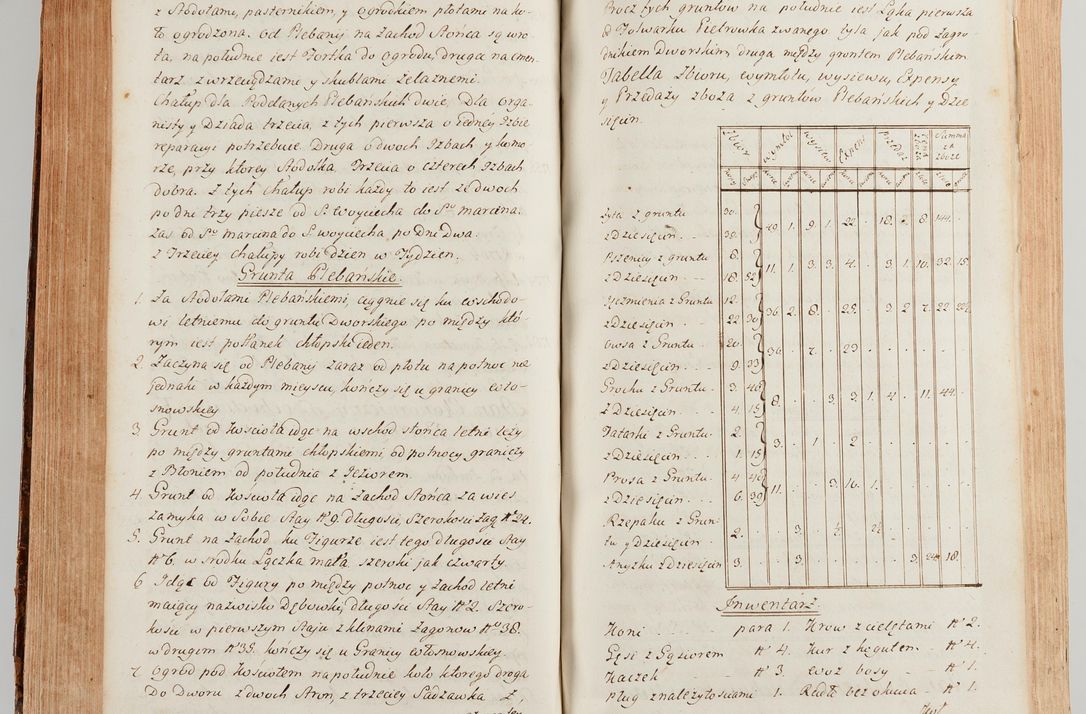 z Stodołami, pasternikiem, y ogrodkiem płotami na ko-
ło ogrodzona. Od Plebanij na Zachod Słonca są wro-
ta, na południe iest Fortka do ogrodu, druga na cmen-
tarz z wrzeciądzami y skublami żelaznemi.
Chałup dla Poddanych Plebańskich dwie, Dla orga-
nisty y Dziada trzecia, z tych pierwsza o iedney Izbie
reparacyi potrzebuie. Druga o dwoch Izbach y komo-
rze, przy ktorey Stodołka. Trzecia o czterech Izbach
dobra. Z tych Chałup robi każdy to iest ze dwoch
po dni trzy piesze od S. Woyciecha do Sgo Marcina.
zaś od Sgo Marcina do S. Woyciecha po dni Dwa.
z Trzeciey Chałupy robi dzien w Tydzien.
Grunta Plebańskie.
1. Za Stodołami Plebańskiemi, ciągnie się ku wschodo-
wi letniemu do gruntu Dworskiego po między któ-
rym iest postanek chłopski ieden.
2. Zaczyna się od Plebanij zaraz od płotu na połnoc nie
jednaki w każdym mieyscu, kończy się u granicy Wło-
snowskiey
3. Grunt od Kościoła idąc na wschod słońca letni leży
po między gruntami chłopskiemi, od połnocy graniczy
z Błoniem od południa z Jeziorem.
4. Grunt od Kościoła idąc na Zachod Słońca za wieś
zamyka w Sobie Stay No 9. długości, Szerokości zag. No 24.
5. Grunt na Zachod ku Figurze iest tego długości Stay
No 6. w srodku Łączka mała, szeroki jak czwarty.
6 Idąc od Figury po między połnoc y Zachod letni
maiący nazwisko Dębowski, długości Stay No 2. Szero-
kości w pierwszym Staju z klinami Zagonow No 38.
w drugim No 35. kończy się u Granicy Włosnowskiey.
7. Ogrod pod Kościołem na południe koło ktorego droga
Do Dworu z dwoch Stron, z trzeciey Sadzawka
Procz tych gruntow na południe iest Łąka pierwsza
od Folwarku Pietrowka zwanego łysa jak pod zagro-
dnikiem Dworskim, druga między grontem Plebańskim
Tabella Zbioru, wymłotu, wysiewu, Expensy
y Przedaży zboża z gruntow Plebańskich y Dzie-
sięcin.
Zbior wymłot wysiew Expens Przedaż Cena zboża Summa za zboże
Żyta z gruntu 30. 29 1. 9. 1. 22. 18. 2. 8. 144.
z Dziesięcin 30.
Pszenicy z gruntu 8. 11. 1. 3. 3. 4. 3. 1. 10. 32. 15
z Dziesięcin 18. 52
Jęczmienia z Gruntu 12. 36. 2. 8. 25. 3. 2 7. 22 22½
z Dziesięcin 22 30
Owsa z Gruntu 20. 36. 7. 29
z Dziesięcin 9. 33
Grochu z Gruntu 3. 40 8. 3. 3. 1. 4. 11. 44.
z Dziesięcin 4. 15
Tatarki z Gruntu 2. 3. 1. 2.
z Dziesięcin 1. 15
Prosa z Gruntu 4 40 11. 3. 10. 1.
z Dziesięcin 6. 30
Rzepaku z Grun- 2. 3. ½ 2½
tu y Dziesięcin
Anyżku z Dziesięcin 3. 3. 24. 18.
Inwentarz.
Koni para 1. Krow z cielętami No 2.
Gęsi z Gąsiorem No 4. Kur z kogutem No 4.
Kaczek No 3. Woz bosy No 1.
Pług z należytościami 1. Radło bez okucia No 1.